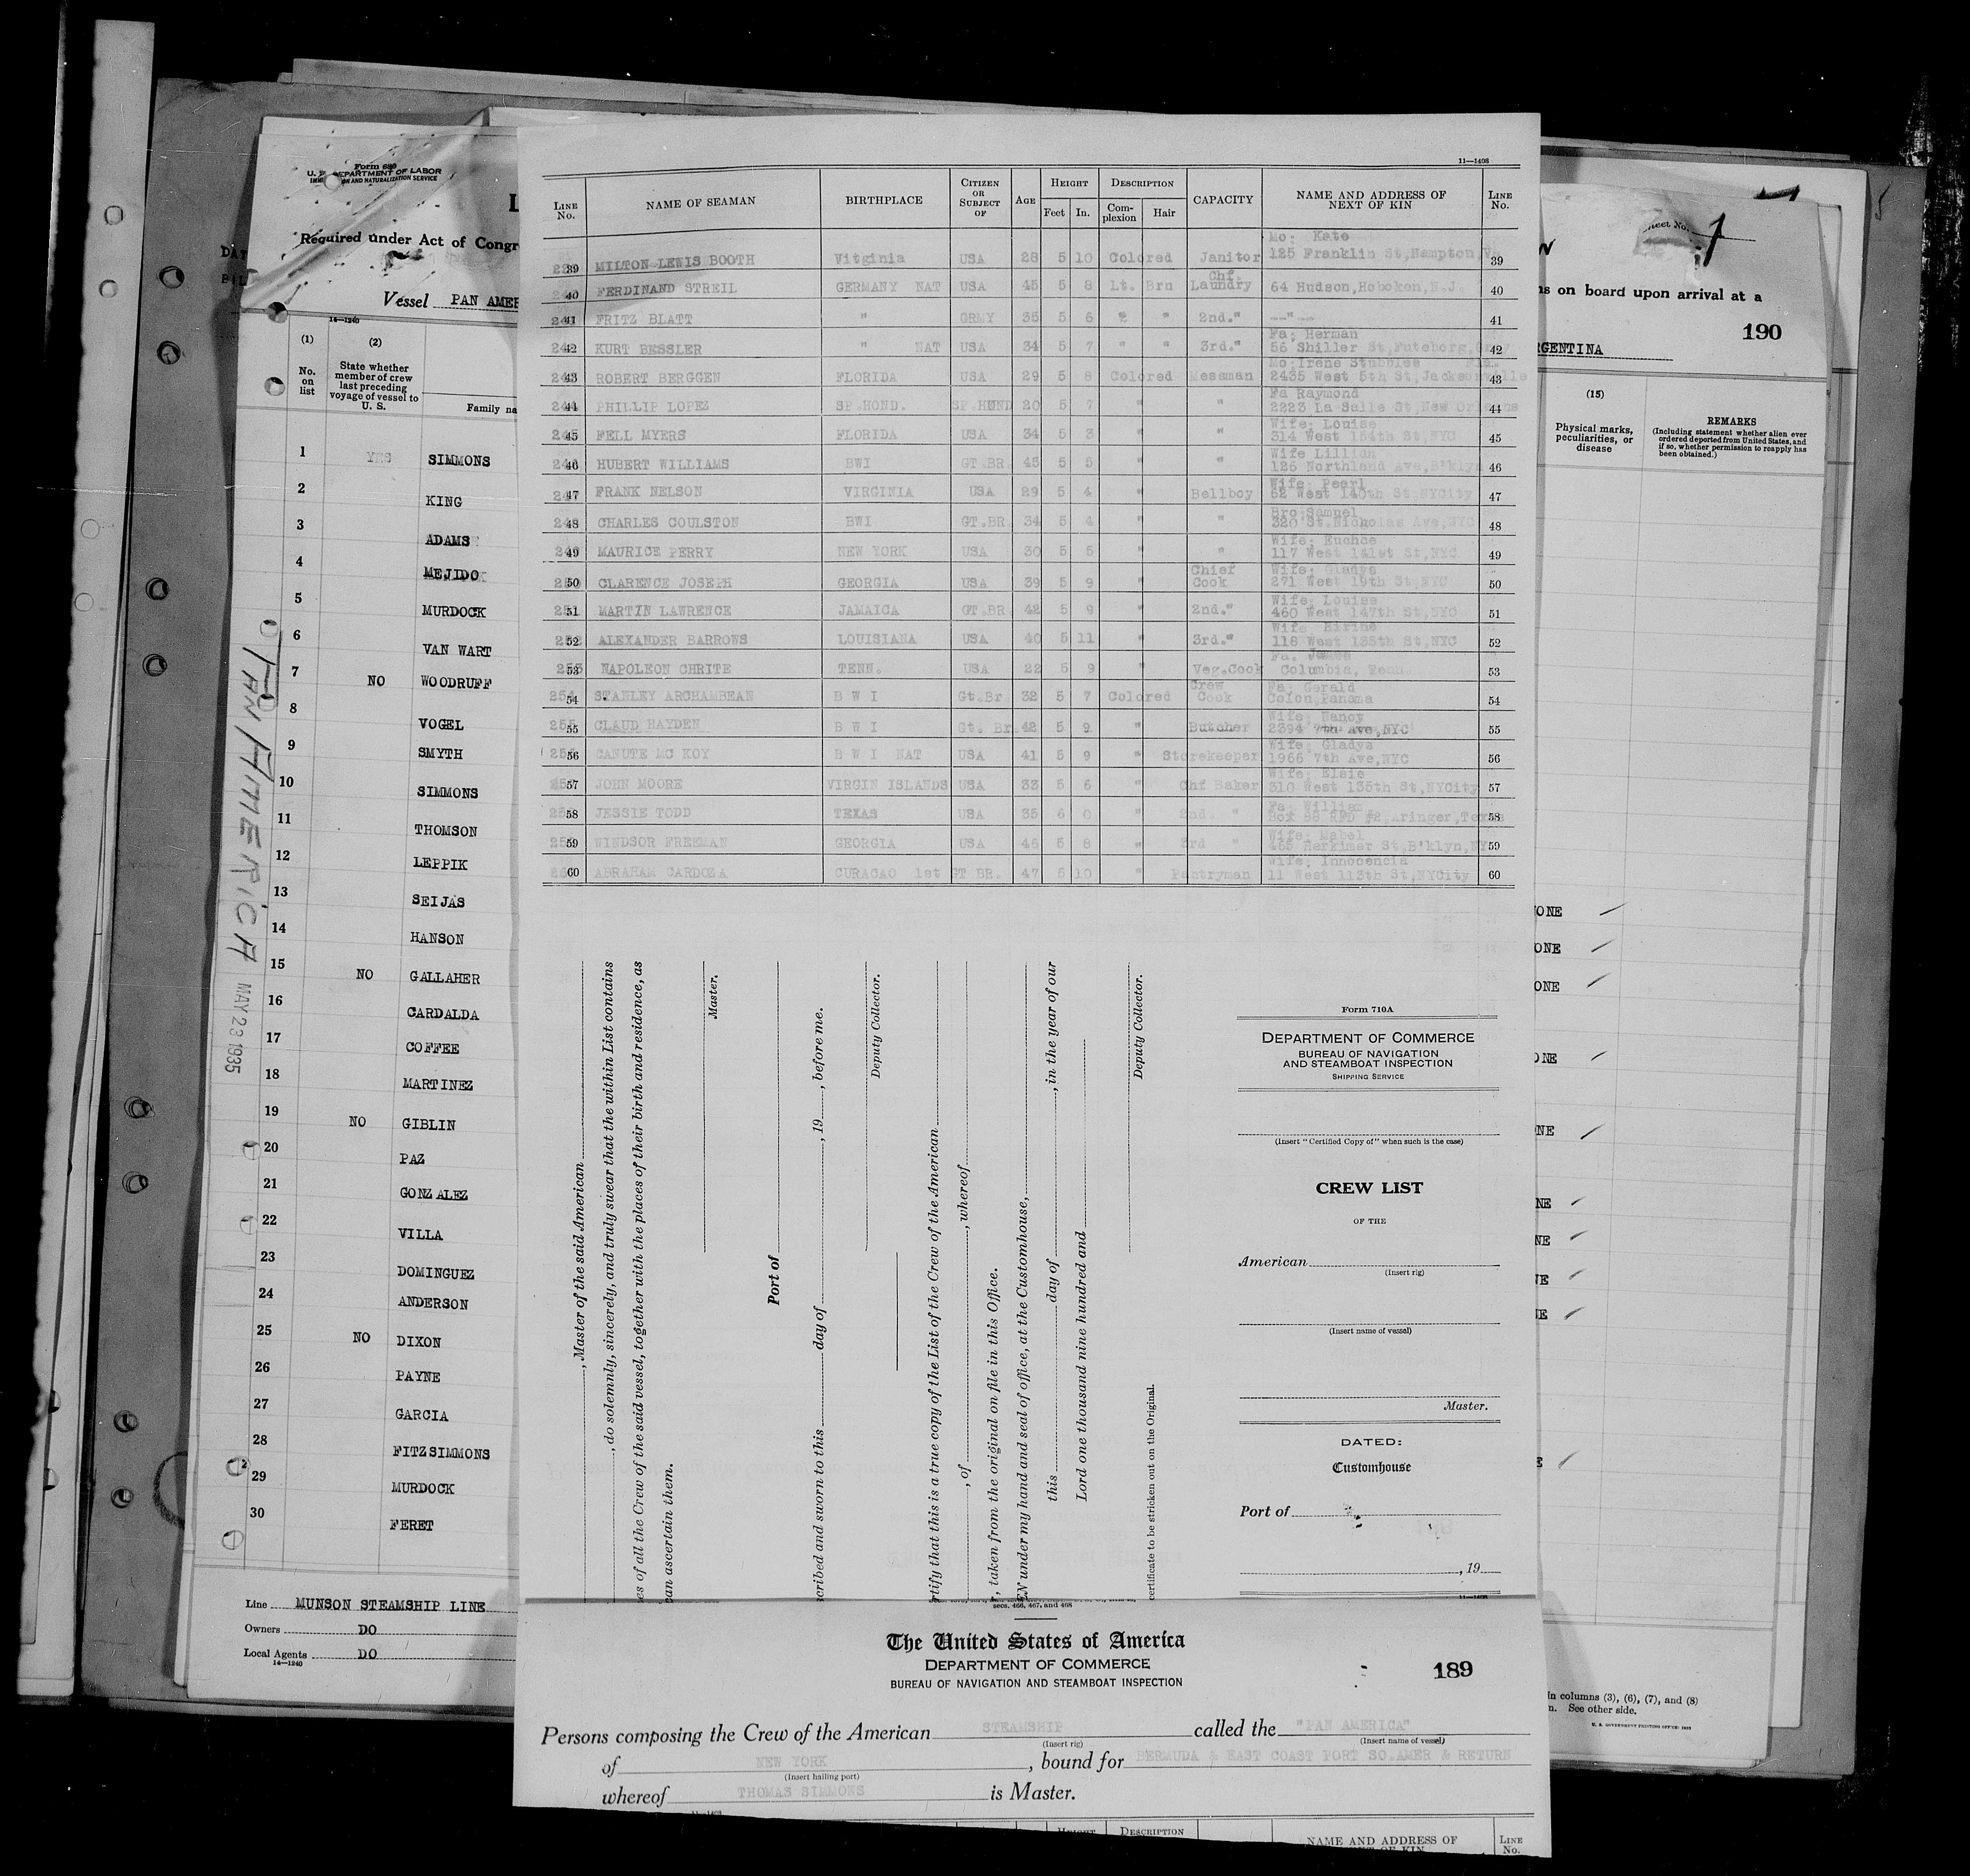 Form 689
U. S. DEPARTMENT OF LABOR
IMMIGRATION AND NATURALIZATION SERVICE
Required under Act of Congr
Vessel PAN AMER
14—1240
(1)
(2)
No. on list
State whether member of crew last preceding voyage of vessel to U. S.
Family na
1 YES SIMMONS
2 KING
3 ADAMS
4 MEJIDO
5 MURDOCK
6 VAN WART
7 NO WOODRUFF
8 VOGEL
9 SMYTH
10 SIMMONS
11 THOMSON
12 LEPPIK
13 SEIJAS
14 HANSON
15 NO GALLAHER
16 CARDALDA
17 COFFEE
18 MARTINEZ
19 NO GIBLIN
20 PAZ
21 GONZALEZ
22 VILLA
23 DOMINGUEZ
24 ANDERSON
25 NO DIXON
26 PAYNE
27 GARCIA
28 FITZSIMMONS
29 MURDOCK
30 FERET
Line MUNSON STEAMSHIP LINE
Owners DO
Local Agents DO
14—1240
PAN AMERICA
MAY 23 1935
11—1408
LINE No. NAME OF SEAMAN BIRTHPLACE CITIZEN OR SUBJECT OF AGE HEIGHT Feet In. DESCRIPTION Complexion Hair CAPACITY NAME AND ADDRESS OF NEXT OF KIN LINE No.
Mo: Kate
39 MILTON LEWIS BOOTH Vitginia USA 28 5 10 Colored Janitor 125 Franklin St,Hampton,V 39
Chf.
40 FERDINAND STREIL GERMANY NAT USA 45 5 8 Lt. Brn Laundry 64 Hudson,Hoboken,N.J. 40
41 FRITZ BLATT " GRMY 35 5 6 " " 2nd." --"-- 41
Fa: Herman
42 KURT BESSLER " NAT USA 34 5 7 " " 3rd." 56 Shiller St, 42
Mo:Irene Stubbles Fla.
43 ROBERT BERGGEN FLORIDA USA 29 5 8 Colored Messman 2435 West 5th St,Jacksonville 43
Fa Raymond
44 PHILLIP LOPEZ SP.HOND. SP.HOND 20 5 7 " " 2223 La Salle St,New Orleans 44
Wife: Louise
45 FELL MYERS FLORIDA USA 34 5 3 " " 314 West 154th St,NYC 45
Wife Lillian
46 HUBERT WILLIAMS BWI GT.BR. 45 5 5 " " 126 Northland Ave,B'klyn 46
Wife: Pearl
47 FRANK NELSON VIRGINIA USA 29 5 4 " Bellboy 62 West 140th St,NYCity 47
Bro:Samuel
48 CHARLES COULSTON BWI GT.BR. 34 5 4 " " 320 St.Nickolas Ave,NYC 48
Wife:
49 MAURICE PERRY NEW YORK USA 30 5 5 " " 117 West 141st St,NYC 49
Chief Wife: Gladys
50 CLARENCE JOSEPH GEORGIA USA 39 5 9 " Cook 271 West 19th St,NYC 50
Wife: Louise
51 MARTIN LAWRENCE JAMAICA GT.BR. 42 5 9 " 2nd." 460 West 147th St,NYC 51
Wife
52 ALEXANDER BARROWS LOUISIANA USA 40 5 11 " 3rd." 118 West 135th St,NYC 52
Fa. James
53 NAPOLEON CHRITE TENN. USA 22 5 9 " Veg.Cook Columbia, Tenn. 53
Crew Fa: Gerald
54 STANLEY ARCHAMBEAN B W I Gt.Br. 32 5 7 Colored Cook Colon,Panama 54
Wife: Nancy
55 CLAUD HAYDEN B W I Gt. Br. 42 5 9 " Butcher 2394 7th Ave,NYC 55
Wife: Gladys
56 CANUTE MC KOY B W I NAT USA 41 5 9 " Storekeeper 1966 7th Ave,NYC 56
Wife: Elsie
57 JOHN MOORE VIRGIN ISLANDS USA 33 5 6 " Chf Baker 310 West 135th St,NYCity 57
Fa: William
58 JESSIE TODD TEXAS USA 35 6 0 " 2nd. " Box 88 RFD #2,Aringer,Texas 58
Wife: Mabel
59 WINDSOR FREEMAN GEORGIA USA 46 5 8 " 3rd " 465 Herkimer St,B'klyn,NY 59
Wife: Innocencia
60 ABRAHAM CARDOZA CURACAO 1st GT BR. 47 5 10 " Pantryman 11 West 113th St,NYCity 60
, Master of the said American
, do solemnly, sincerely, and truly swear that the within List contains
es of all the Crew of the said vessel, together with the places of their birth and residence, as
can ascertain them.
Master.
Port of
scribed and sworn to this day of , 19 , before me.
Deputy Collector.
rtify that this is a true copy of the List of the Crew of the American
, of , whereof
, taken from the original on file in this Office.
EN under my hand and seal of office, at the Customhouse,
this day of , in the year of our
Lord one thousand nine hundred and
Deputy Collector.
certificate to be stricken out on the Original.
Form 710A
DEPARTMENT OF COMMERCE
BUREAU OF NAVIGATION
AND STEAMBOAT INSPECTION
SHIPPING SERVICE
(Insert "Certified Copy of" when such is the case)
CREW LIST
OF THE
American
(Insert rig)
(Insert name of vessel)
Master.
DATED:
Customhouse
Port of
, 19
11—1408
secs. 466, 467, and 468
The United States of America
DEPARTMENT OF COMMERCE
BUREAU OF NAVIGATION AND STEAMBOAT INSPECTION
189
Persons composing the Crew of the American STEAMSHIP called the "PAN AMERICA"
(Insert rig) (Insert name of vessel)
of NEW YORK , bound for BERMUDA & EAST COAST PORT SO.AMER & RETURN
(Insert hailing port)
whereof THOMAS SIMMONS is Master.
11—1408
HEIGHT DESCRIPTION NAME AND ADDRESS OF LINE No.
Sheet No. 1
ns on board upon arrival at a
190
RGENTINA
(15)
Physical marks, peculiarities, or disease
REMARKS
(Including statement whether alien ever ordered deported from United States, and if so, whether permission to reapply has been obtained.)
ONE
ONE
ONE
ONE
NE
NE
NE
NE
NE
E
in columns (3), (6), (7), and (8)
n. See other side.
U. S. GOVERNMENT PRINTING OFFICE